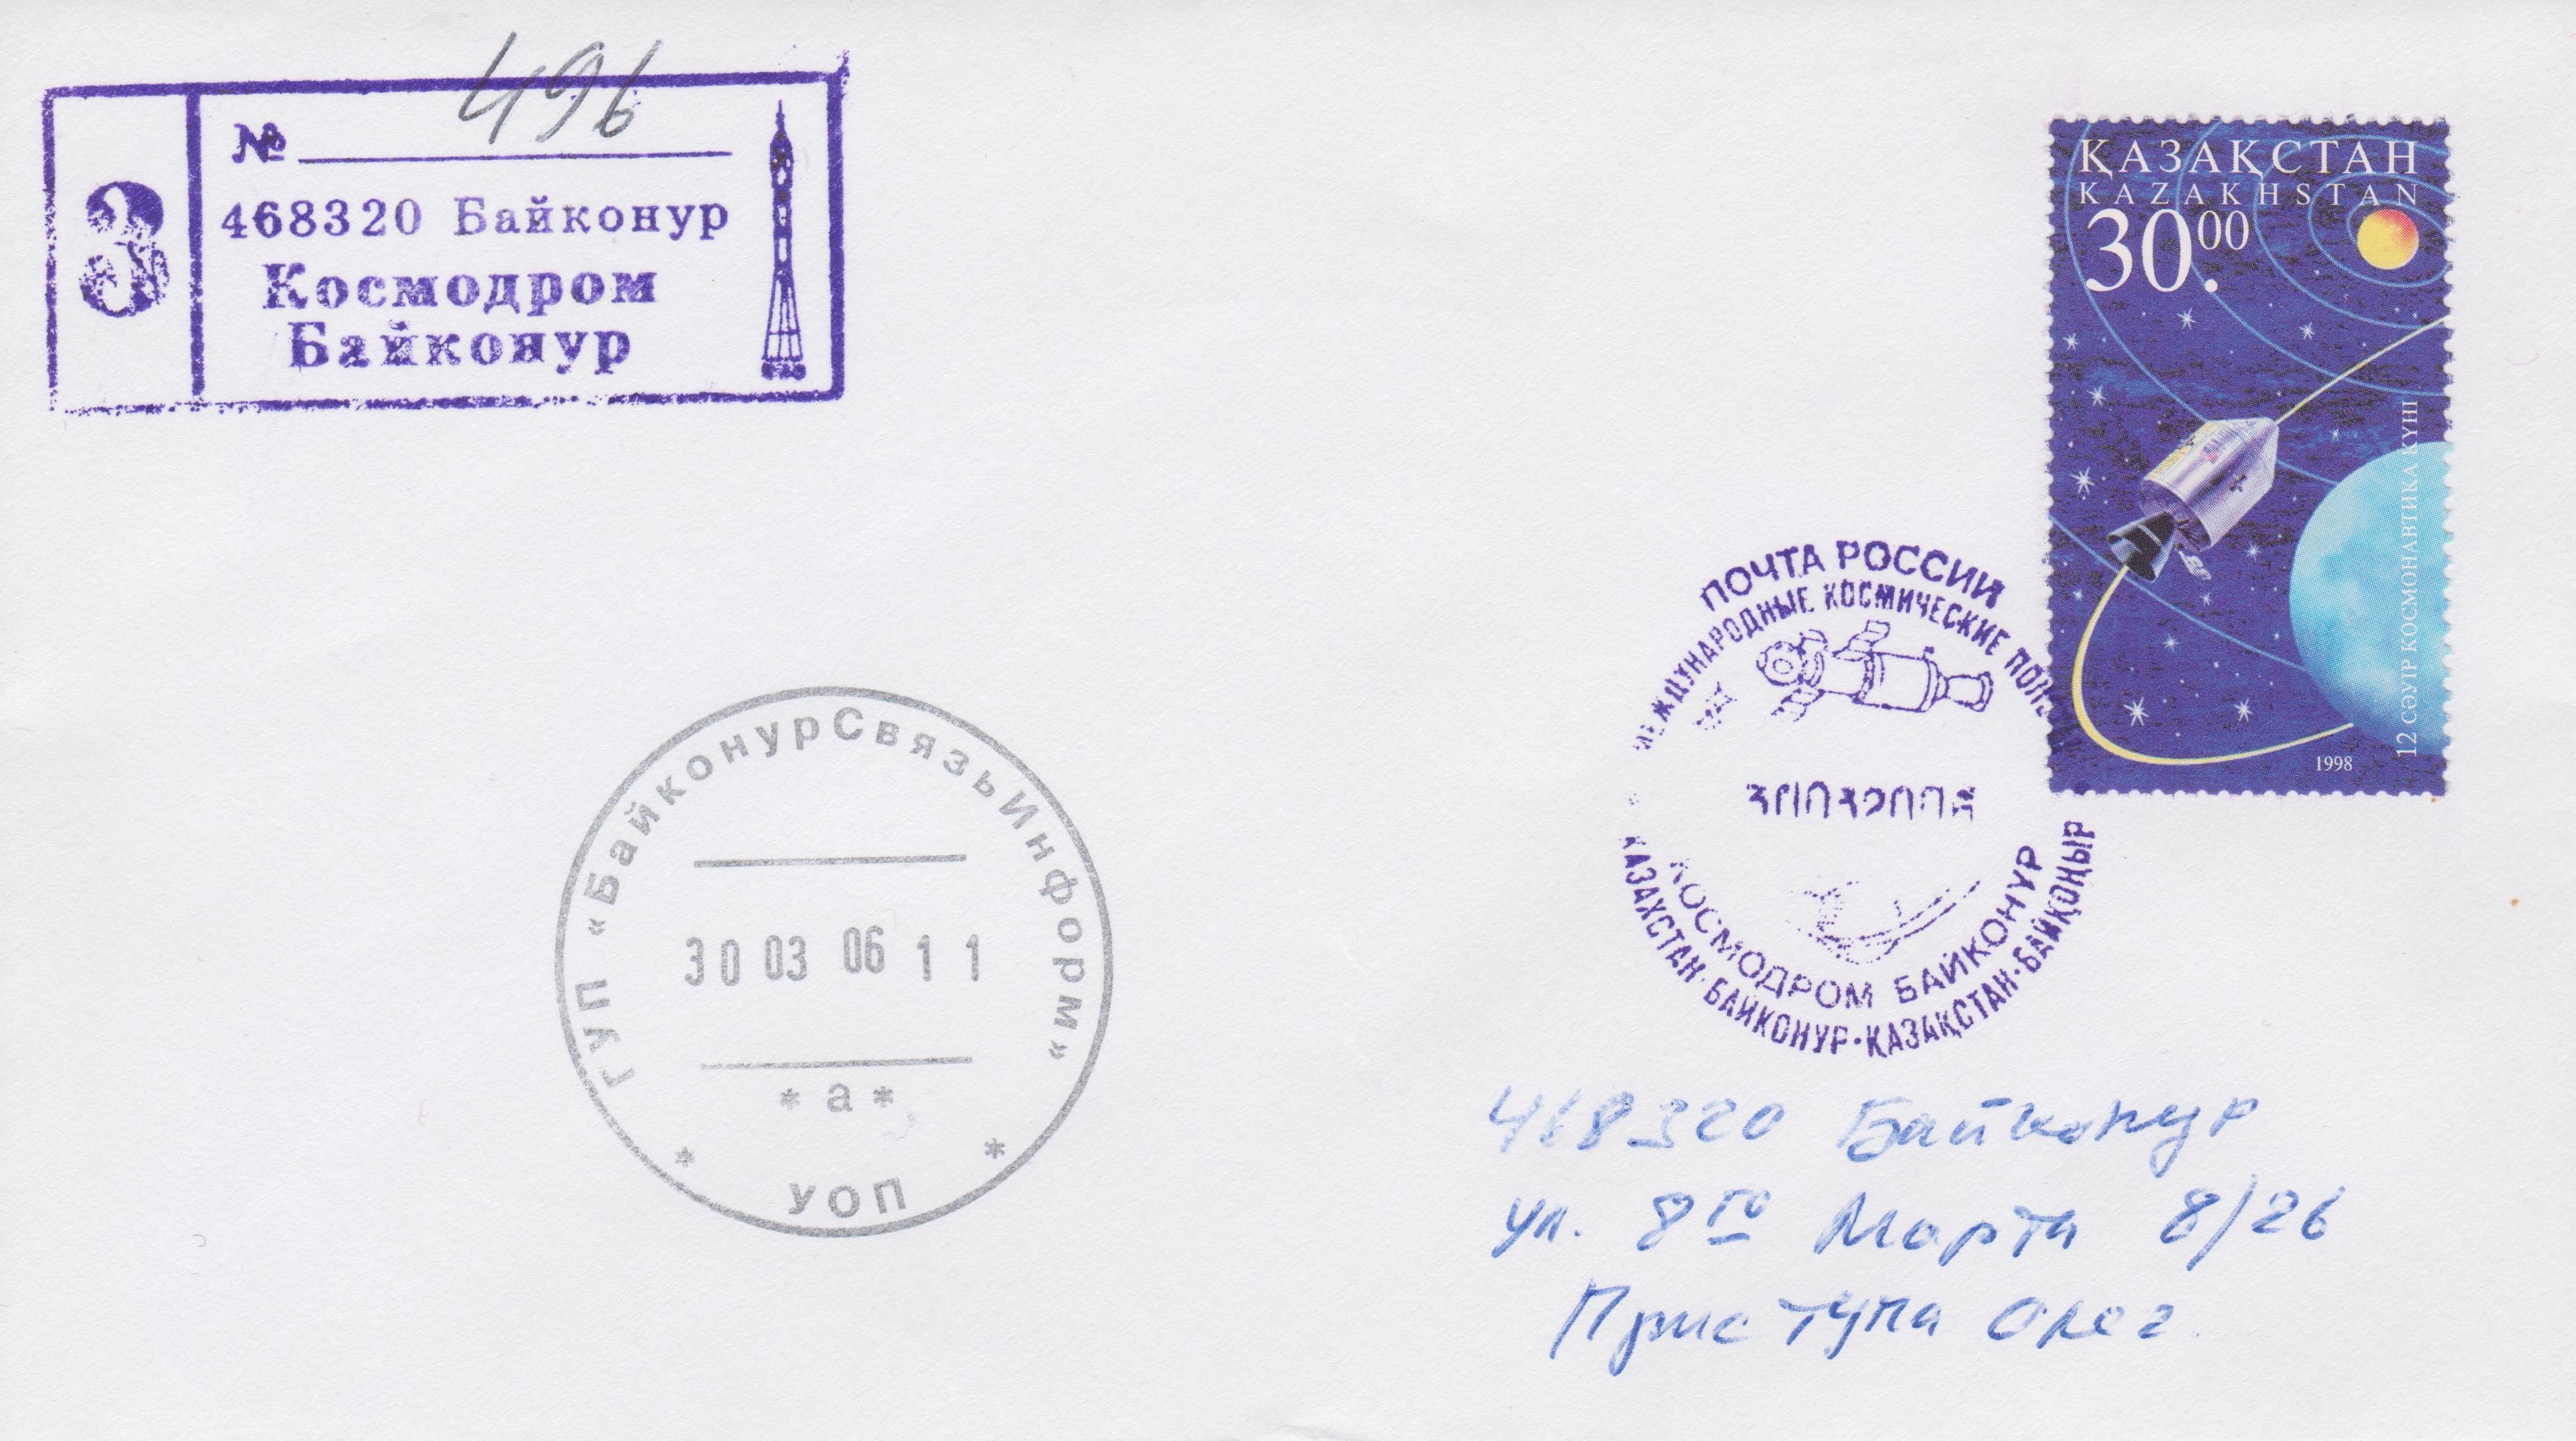 496
№
З
468320 Байконур
Космодром
Байконур
ҚАЗАҚСТАН
KAZAKHSTAN
30.00
12 СӘУІР КОСМОНАВТИКА КҮНІ
1998
ПОЧТА РОССИИ
МЕЖДУНАРОДНЫЕ КОСМИЧЕСКИЕ
30032006
КОСМОДРОМ БАЙКОНУР
КАЗАХСТАН·БАЙКОНУР·ҚАЗАҚСТАН·БАЙҚОҢЫР
ГУП «БайконурСвязьИнформ»
30 03 06 11
* а *
* УОП *
468320 Байконур
ул. 8го Марта 8/26
Приступа Олег.